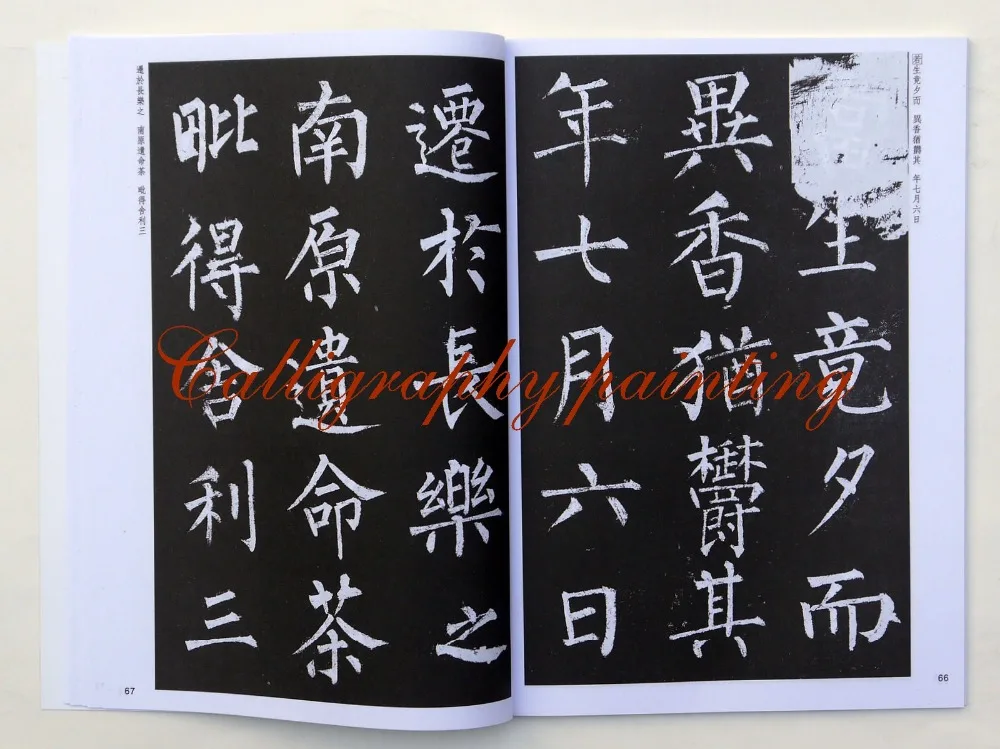 若生竟夕而 異香猶鬱其 年七月六日
生竟夕而
異香猶鬱其
年七月六日
66
遷於長樂之
南原遺命茶
毗得舍利三
遷於長樂之 南原遺命茶 毗得舍利三
67
Calligraphy painting